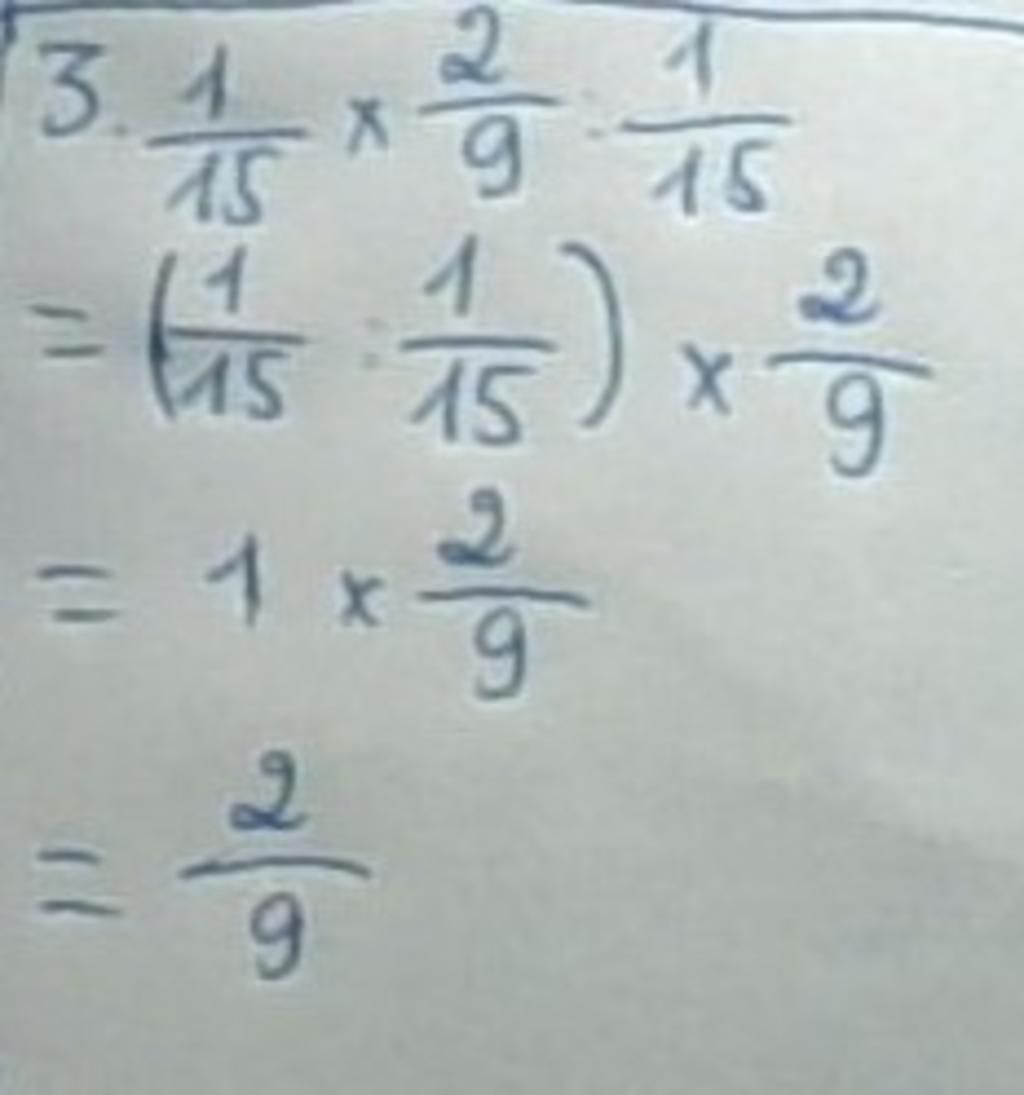 3. 1/15 x 2/9 : 1/15
= (1/15 : 1/15) x 2/9
= 1 x 2/9
= 2/9